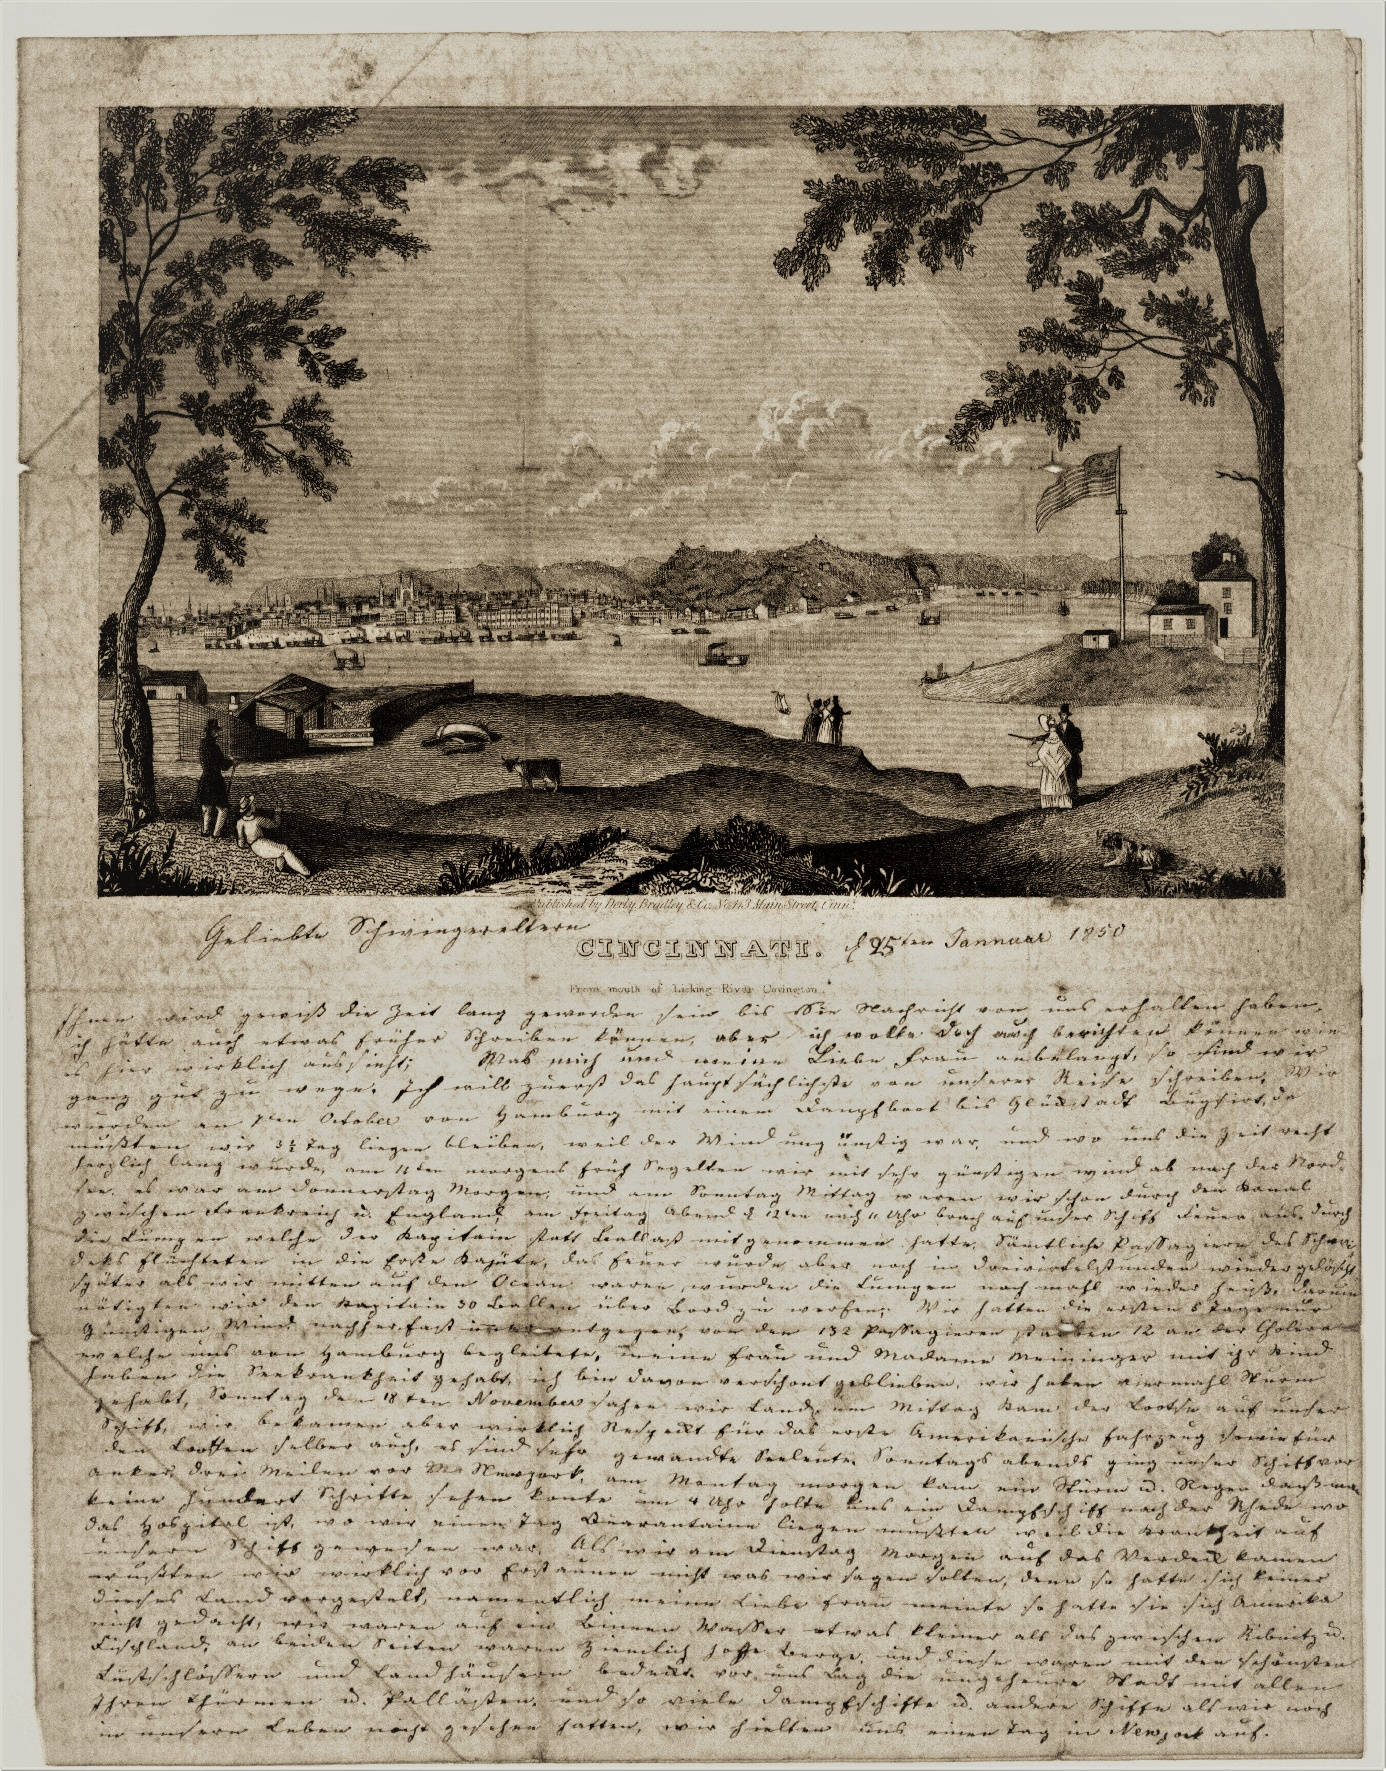 Published by Derby, Bradley & Co. No 113 Main Street, Cinn.
Geliebte Schwiegereltern
CINCINNATI. d 25ten Jannuar 1850
From mouth of Licking River Covington.
Ihnen wird gewiß die Zeit lang geworden sein bis Sie Nachricht von uns erhalten haben,
ich hätte auch etwas früher Schreiben können, aber ich wolte doch auch berichten können wie
es hier wirklich aussieht; Was mich und meine Liebe Frau anbelangt, so sind wir
ganz gut zu wege. Ich will zuerst das hauptsächlichste von unserer Reise schreiben, Wir
wurden an 7ten October von Hamburg mit einem Dampfboot bis Glückstadt Bugsirt, da
mußten wir 3½ Tag liegen bleiben, weil der Wind ungünstig war, und wo uns die Zeit recht
herzlich lang wurde, am 11ten morgens früh Segelten wir mit sehr günstigen wind ab nach der Nord-
see. es war am Donnerstag Morgen, und am Sonntag Mittag waren wir schon durch den Kanal
zwischen Frankreich u. England, am Freitag Abend d 12ten nach 11 Uhr brach auf unser Schiff Feuer aus, durch
die Lumpen welche der Kapitain statt Ballast mitgenommen hatte, Sämtliche Passagiere des
deks flüchteten in die Erste Kajüte, das Feuer wurde aber noch in Dreiviertelstunden wieder gelöscht,
später als wir mitten auf den Ocean waren, wurden die Lumpen noch mahl wieder heiß, darum
nötigten wir den Kapitain 30 Ballen über Bord zu werfen; Wir hatten die ersten 8 Tage nur
Günstigen Wind nachher fast immer entgegen, von den 132 Passagieren starben 12 an der Cholera
welche uns von Hamburg begleitete, meine Frau und Madame Meininger mit ihr Kind
haben die Seekrankheit gehabt, ich bin davon verschont geblieben, wir haben viermahl Sturm
gehabt, Sonntag den 18ten November sahen wir Land, um Mittag kam der Lootse auf unser
Schiff, wir bekamen aber wirklich Respeckt für das erste Amerikanische Fahrzeug sowie für
den Lootsen selber auch, es sind sehr gewandte Seeleute, Sonntags abends ging unser Schiff vor
anker drei Meilen vor Newyork, am Montag morgen kam ein Sturm u. Regen daß man
keine hundert Schritte sehen konte um 4 Uhr holte uns ein Dampfschiff nach der Rhede wo
das Hospital ist, wo wir einen Tag Quarantaine liegen mußten weil die Krankheit auf
unsern Schiff gewesen war, Als wir am Dienstag Morgen auf das Verdeck kamen
wußten wir wirklich vor Erstaunen nicht was wir sagen solten, denn so hatte sich keiner
dieses Land vorgestelt, namentlich meine Liebe Frau meinte so hatte sie sich Amerika
nicht gedacht, wir waren auf ein Binnen Wasser etwas kleiner als das zwischen Ribnitz u.
Fischland, an beiden Seiten waren Ziemlich hohe Berge, und diese waren mit den schönsten
Lustschlössern und Landhäusern bedeckt. vor uns Lag die ungeheure Stadt mit allen
Ihren Thürmen u. Pallästen, und so viele Dampfschiffe u. andere Schiffe als wir noch
in unsern Leben nicht gesehen hatten, wir hielten uns einen Tag in Newyork auf.